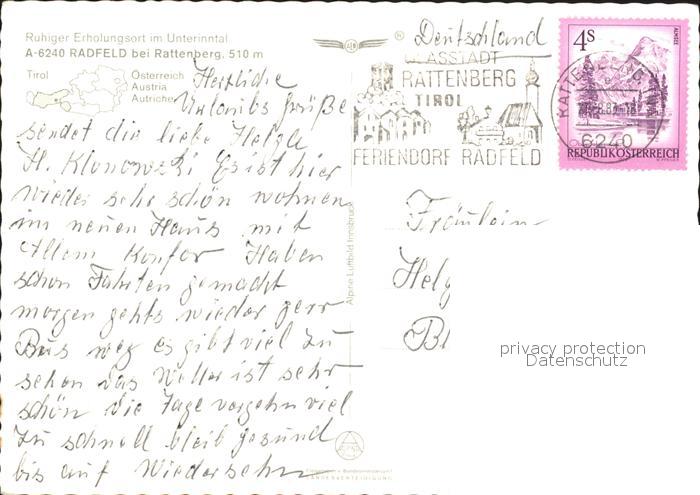 Ruhiger Erholungsort im Unterinntal
A-6240 RADFELD bei Rattenberg, 510 m
Tirol
Österreich
Austria
Autriche
Herzliche
Urlaubs grüße
sendet dir liebe Helga
H. Klonowzki Es ist hier
wieder sehr schön wohnen
im neuen Haus mit
Allem Konfor Haben
schon Fahrten gemacht
morgen gehts wieder perr
Bus weg es gibt viel zu
sehen das Wetter ist sehr
schön die Tage vergehn viel
zu schnell bleib gesund
bis auf Wiedersehn
Alpine Luftbild Innsbruck
Deutschland
GLASSTADT
RATTENBERG
TIROL
FERIENDORF RADFELD
4S
ALMSEE
RATTENBERG
6240
REPUBLIK ÖSTERREICH
Fräulein
Helg
Bl
privacy protection
Datenschutz